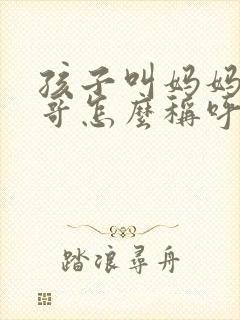 孩子叫妈妈
哥怎麽稱呼
踏浪尋舟